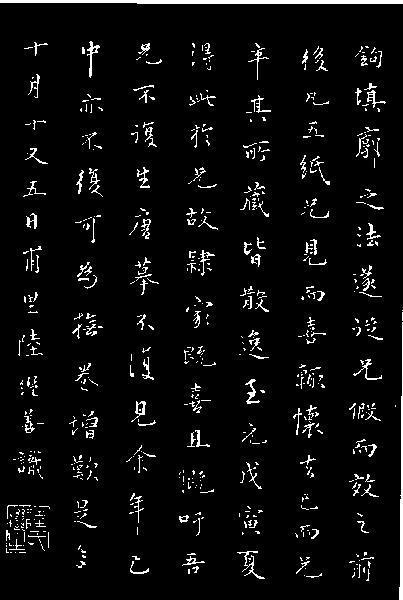 鉤填廓之法遂從兄假而效之前
後凡五紙兄見而喜輒懷去已而兄
卒其所藏皆散逸至元戊寅夏
得此於兄故隸家既喜且慨吁吾
兄不復生唐摹不復見余年已
中亦不復可為撫卷增歎是年
十月十又五日甫里陸繼善識